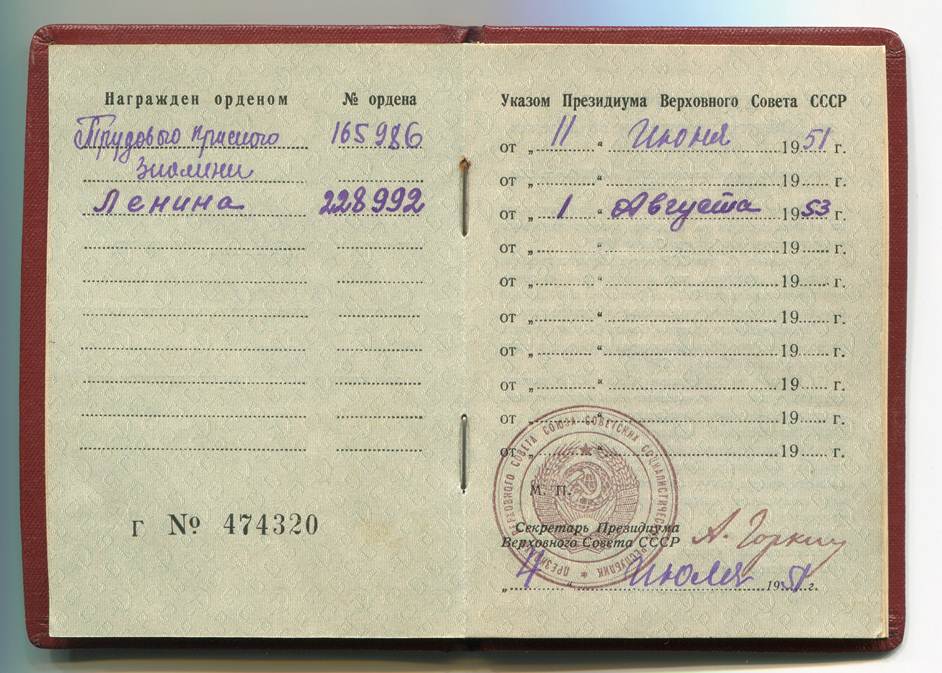 Награжден орденом № ордена
Трудового красного 165986
знамени
Ленина 228992
Г № 474320
Указом Президиума Верховного Совета СССР
от „ 11 “ Июня 1951 г.
от „ “ 19 г.
от „ 1 “ Августа 1953 г.
от „ “ 19 г.
от „ “ 19 г.
от „ “ 19 г.
от „ “ 19 г.
от „ “ 19 г.
от „ “ 19 г.
от „ “ 19 г.
ПРЕЗИДИУМ ВЕРХОВНОГО СОВЕТА СОЮЗА СОВЕТСКИХ СОЦИАЛИСТИЧЕСКИХ РЕСПУБЛИК
М. П.
Секретарь Президиума
Верховного Совета СССР А. Горкин
„ “ Июля 1951 г.